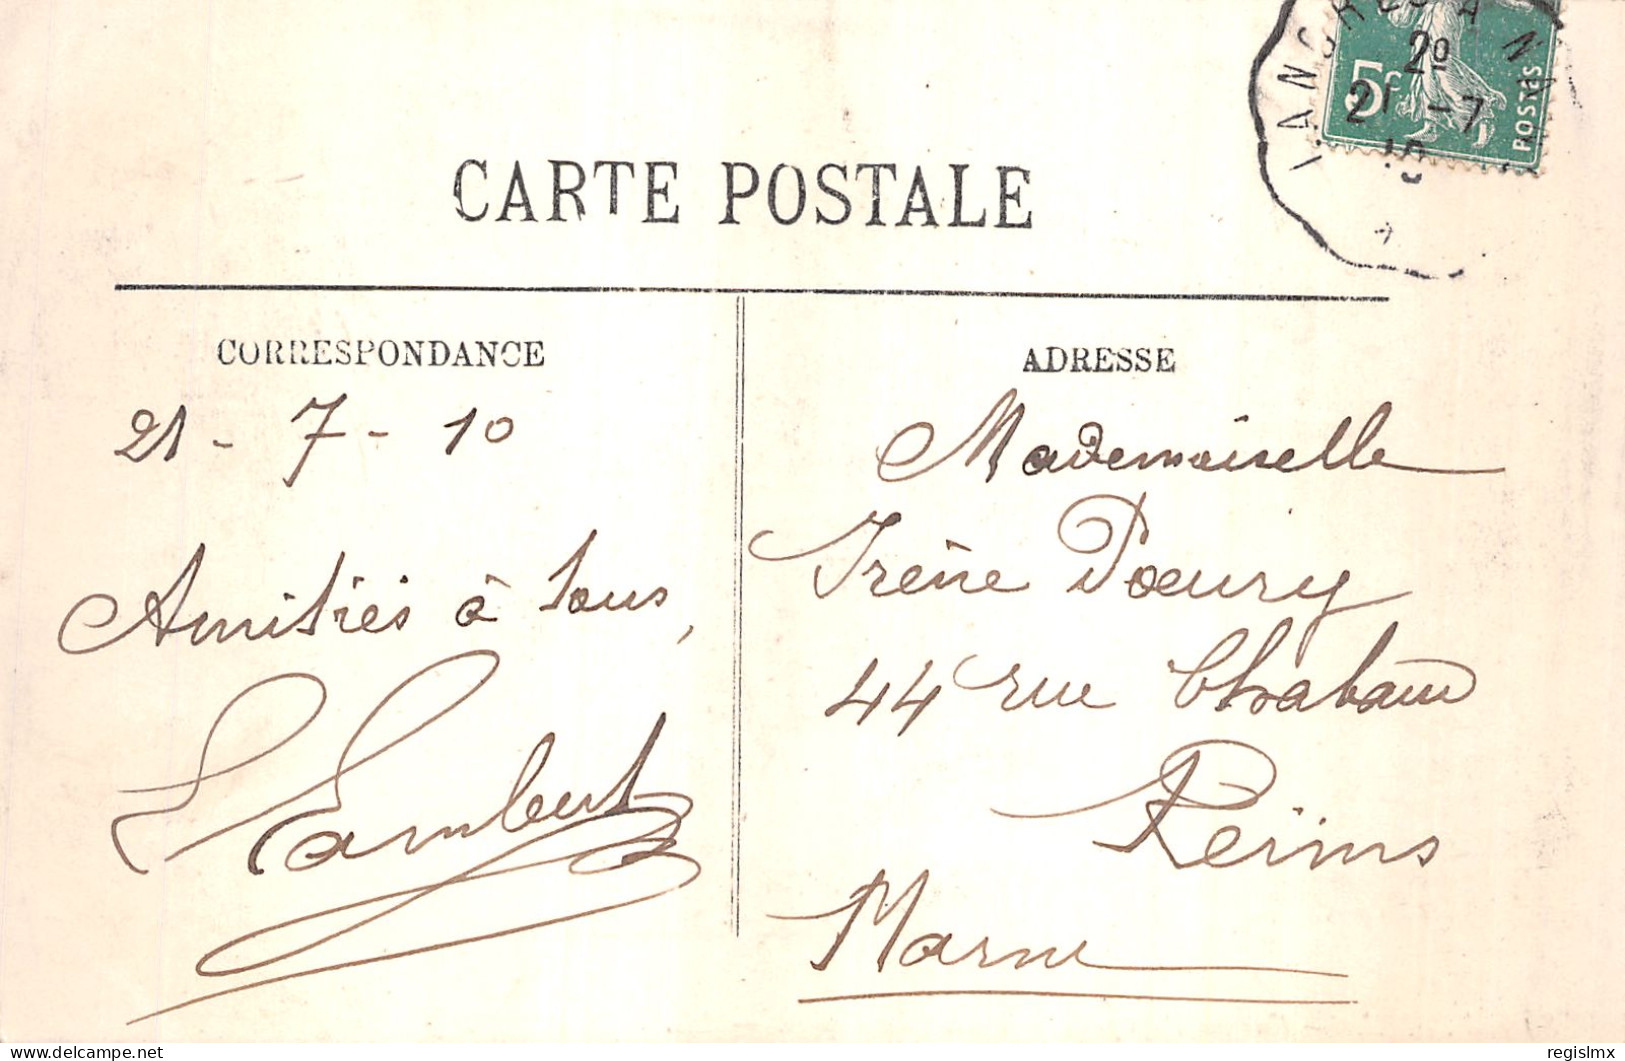 LANGRES A NAN
20
21 - 7
10
5c
POSTES
CARTE POSTALE
CORRESPONDANCE
21 - 7 - 10
Amitiés à tous,
Lambert
ADRESSE
Mademoiselle
Irène Doeury
44 rue Chabaud
Reims
Marne
delcampe.net
regislmx